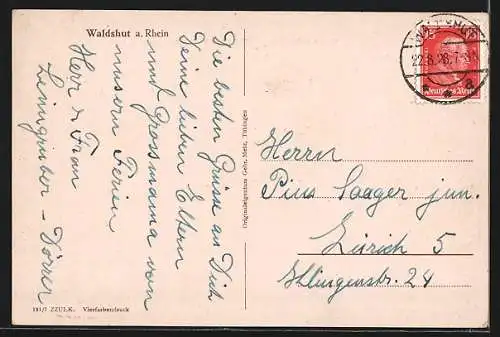 Waldshut a. Rhein
Die besten Grüsse an Dich
Deine lieben Eltern
und Grossmama von
unsern Ferien
Herr & Frau
- Dörrer
Originaleigentum Gebr. Metz, Tübingen
WALDSHUT
22.8.28.7-8
Deutsches Reich
Herrn
Pius Saager jun.
Zürich 5
Ottingenstr. 24
181/7 ZZULK. Vierfarbendruck